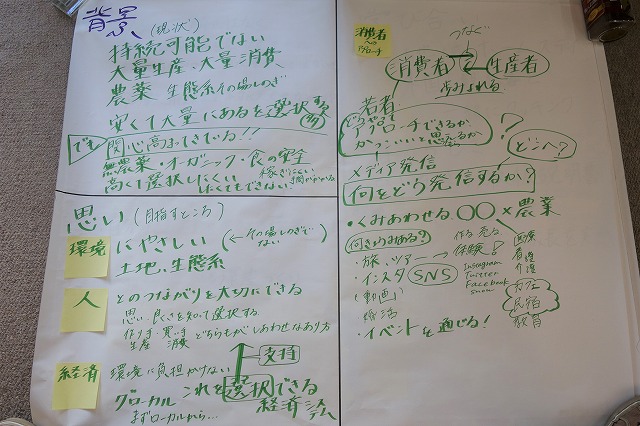 背景 (現状)
持続可能でない
大量生産、大量消費
農薬 生態系 その場しのぎ
安くて大量にあるを選択する
でも
関心高まってきている!!
無農薬・オーガニック・食の安全
高くて選択しにくい
したくてもできない
思い (目指すところ)
環境 にやさしい (←その場しのぎでない)
土地、生態系
人 とのつながりを大切にできる
思い、良さを知って選択する
作り手、買い手
生産 消費 どちらもがしあわせなあり方
支持
経済 環境に負担かけない
グローカル これを選択できる
経済システム
まずローカルから…
消費者
へのアプローチ
つなぐ
消費者 生産者
若者
どうやってアプローチできるか
かっこいいと思えるか
?
メディア発信
どこへ?
何をどう発信するか?
・くみあわせる ○○×農業
・旅、ツアー → 体験!
作る 売る
・インスタ SNS
Instagram
Twitter
Facebook
(動画)
婚活
・イベントを通じる!
医療
看護
介護
カフェ
民宿
教育